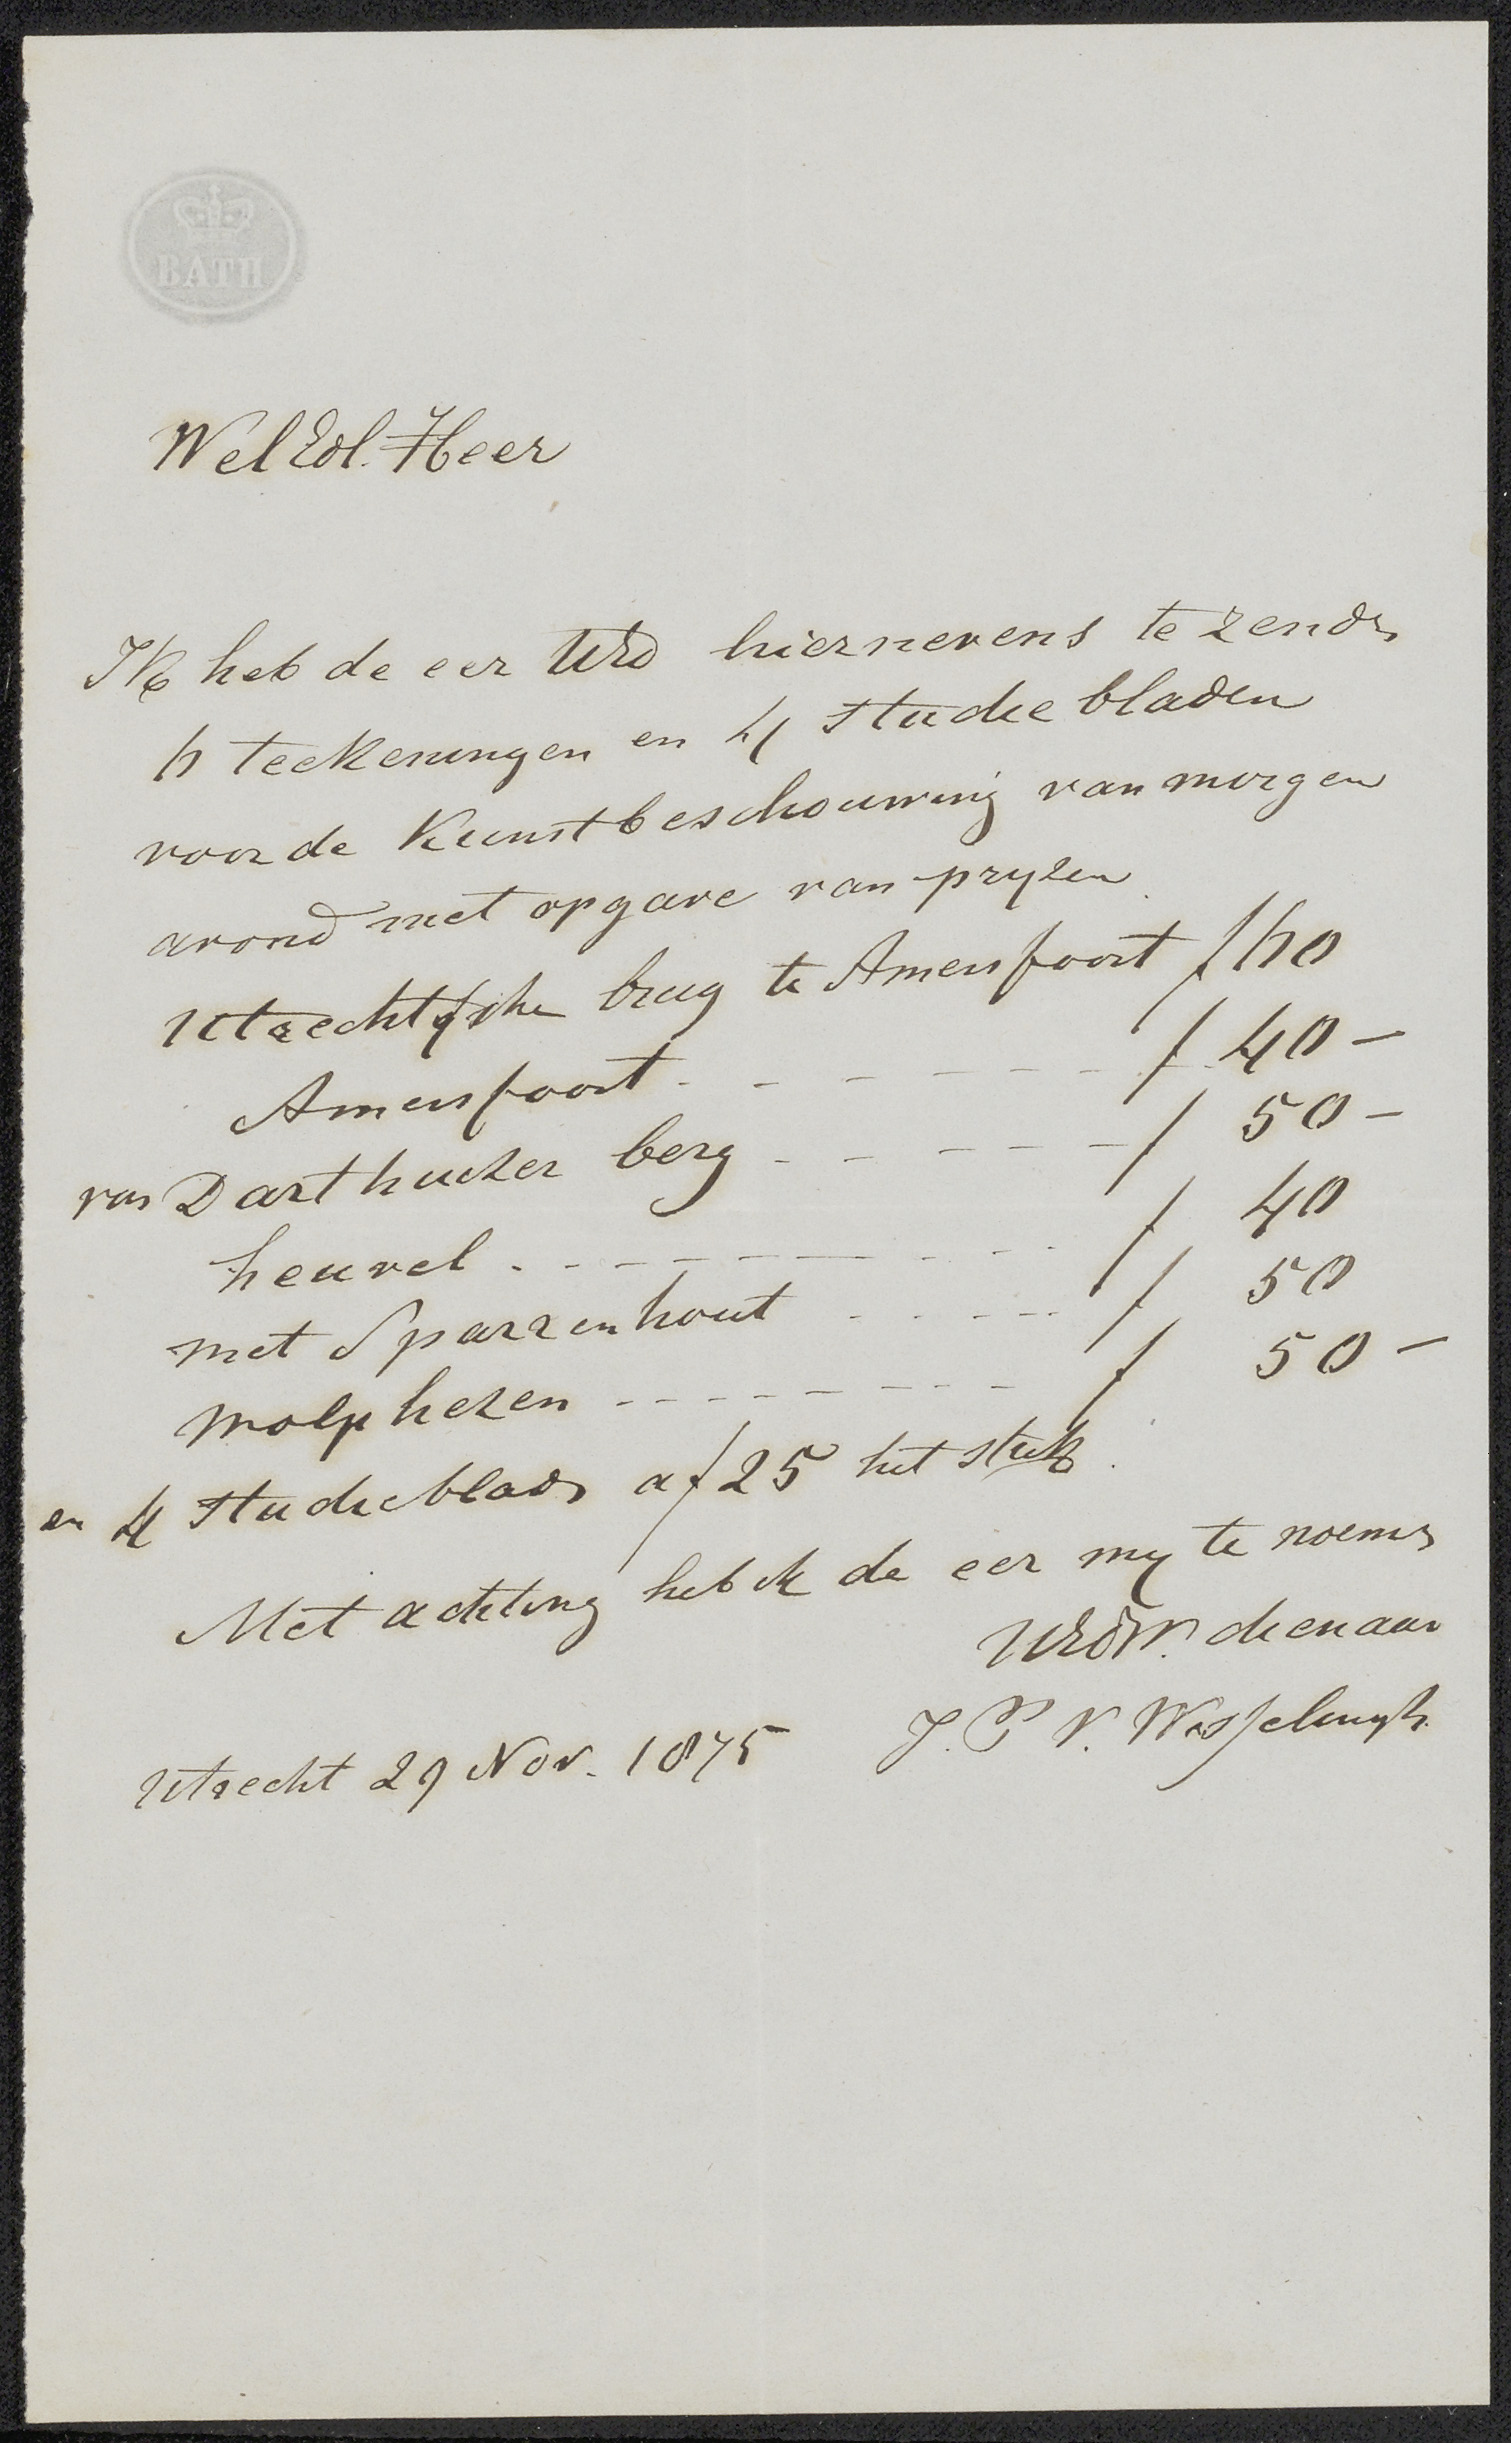 BATH
WelEdl. Heer
Ik heb de eer UEd hiernevens te zenden
6 teekeningen en 4 studie bladen
voor de Kunstbeschouwing van morgen
avond met opgave van pryzen
Utrechtsche brug te Amersfoort f 60
Amersfoort - - - - - - - f 40 -
van Darthuizer berg - - - - - f 50 -
heuvel - - - - - - - - - f 40
met Sparrenhout - - - - - f 50
Wolphezen - - - - - - - - f 50 -
en 4 studiebladen a f 25 het stuk.
Met achting heb ik de eer my te noemen
UEdW. dienaar
J. P V. Wisselingh
Utrecht 29 Nov. 1875